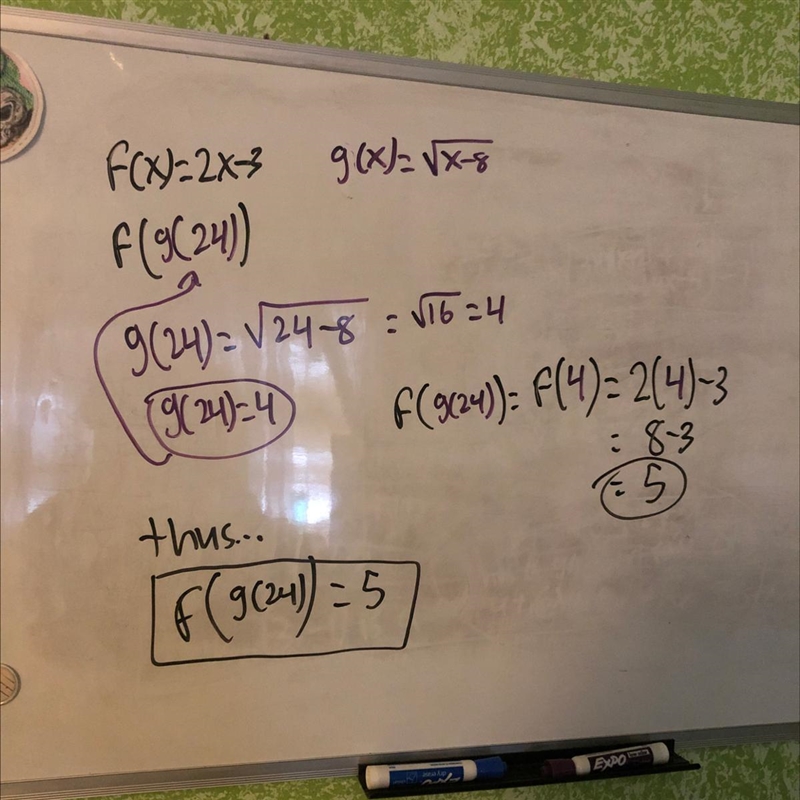 f(x)=2x-3 g(x)=√x-8
f(g(24))
g(24)=√24-8 =√16=4
g(24)=4
f(g(24))=f(4)=2(4)-3
=8-3
=5
thus...
f(g(24))=5
EXPO